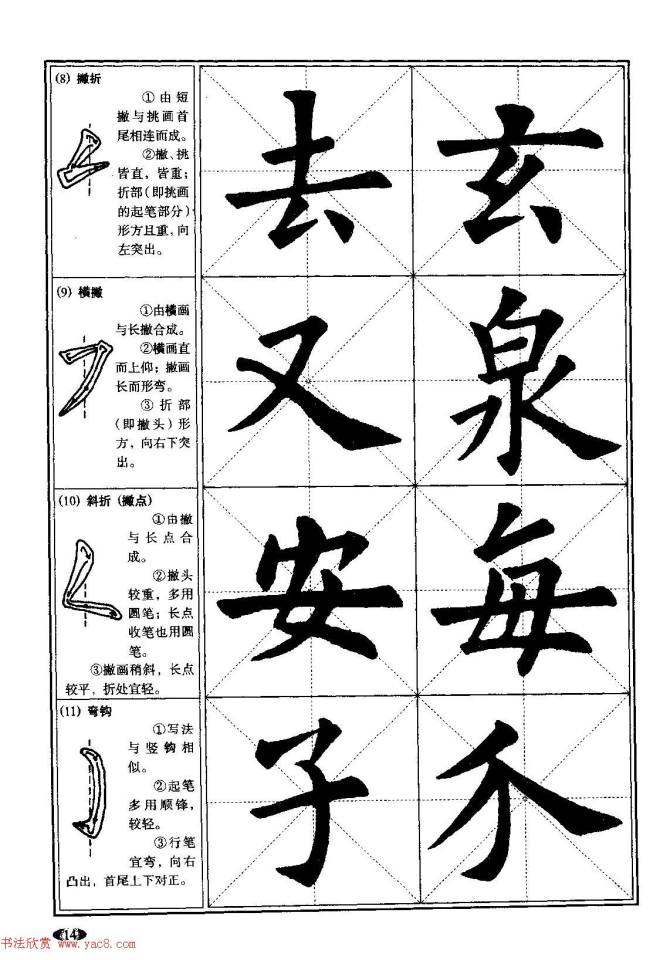 (8) 撇折
①由短
撇与挑画首
尾相连而成。
②撇、挑
皆直，皆重；
折部（即挑画
的起笔部分）
形方且重，向
左突出。
去 玄
(9) 横撇
①由横画
与长撇合成。
②横画直
而上仰；撇画
长而形弯。
③折部
（即撇头）形
方，向右下突
出。
又 泉
(10) 斜折（撇点）
①由撇
与长点合
成。
②撇头
较重，多用
圆笔；长点
收笔也用圆
笔。
③撇画稍斜，长点
较平，折处宜轻。
安 每
(11) 弯钩
①写法
与竖钩相
似。
②起笔
多用顺锋，
较轻。
③行笔
宜弯，向右
凸出，首尾上下对正。
子
14
书法欣赏 www.yac8.com